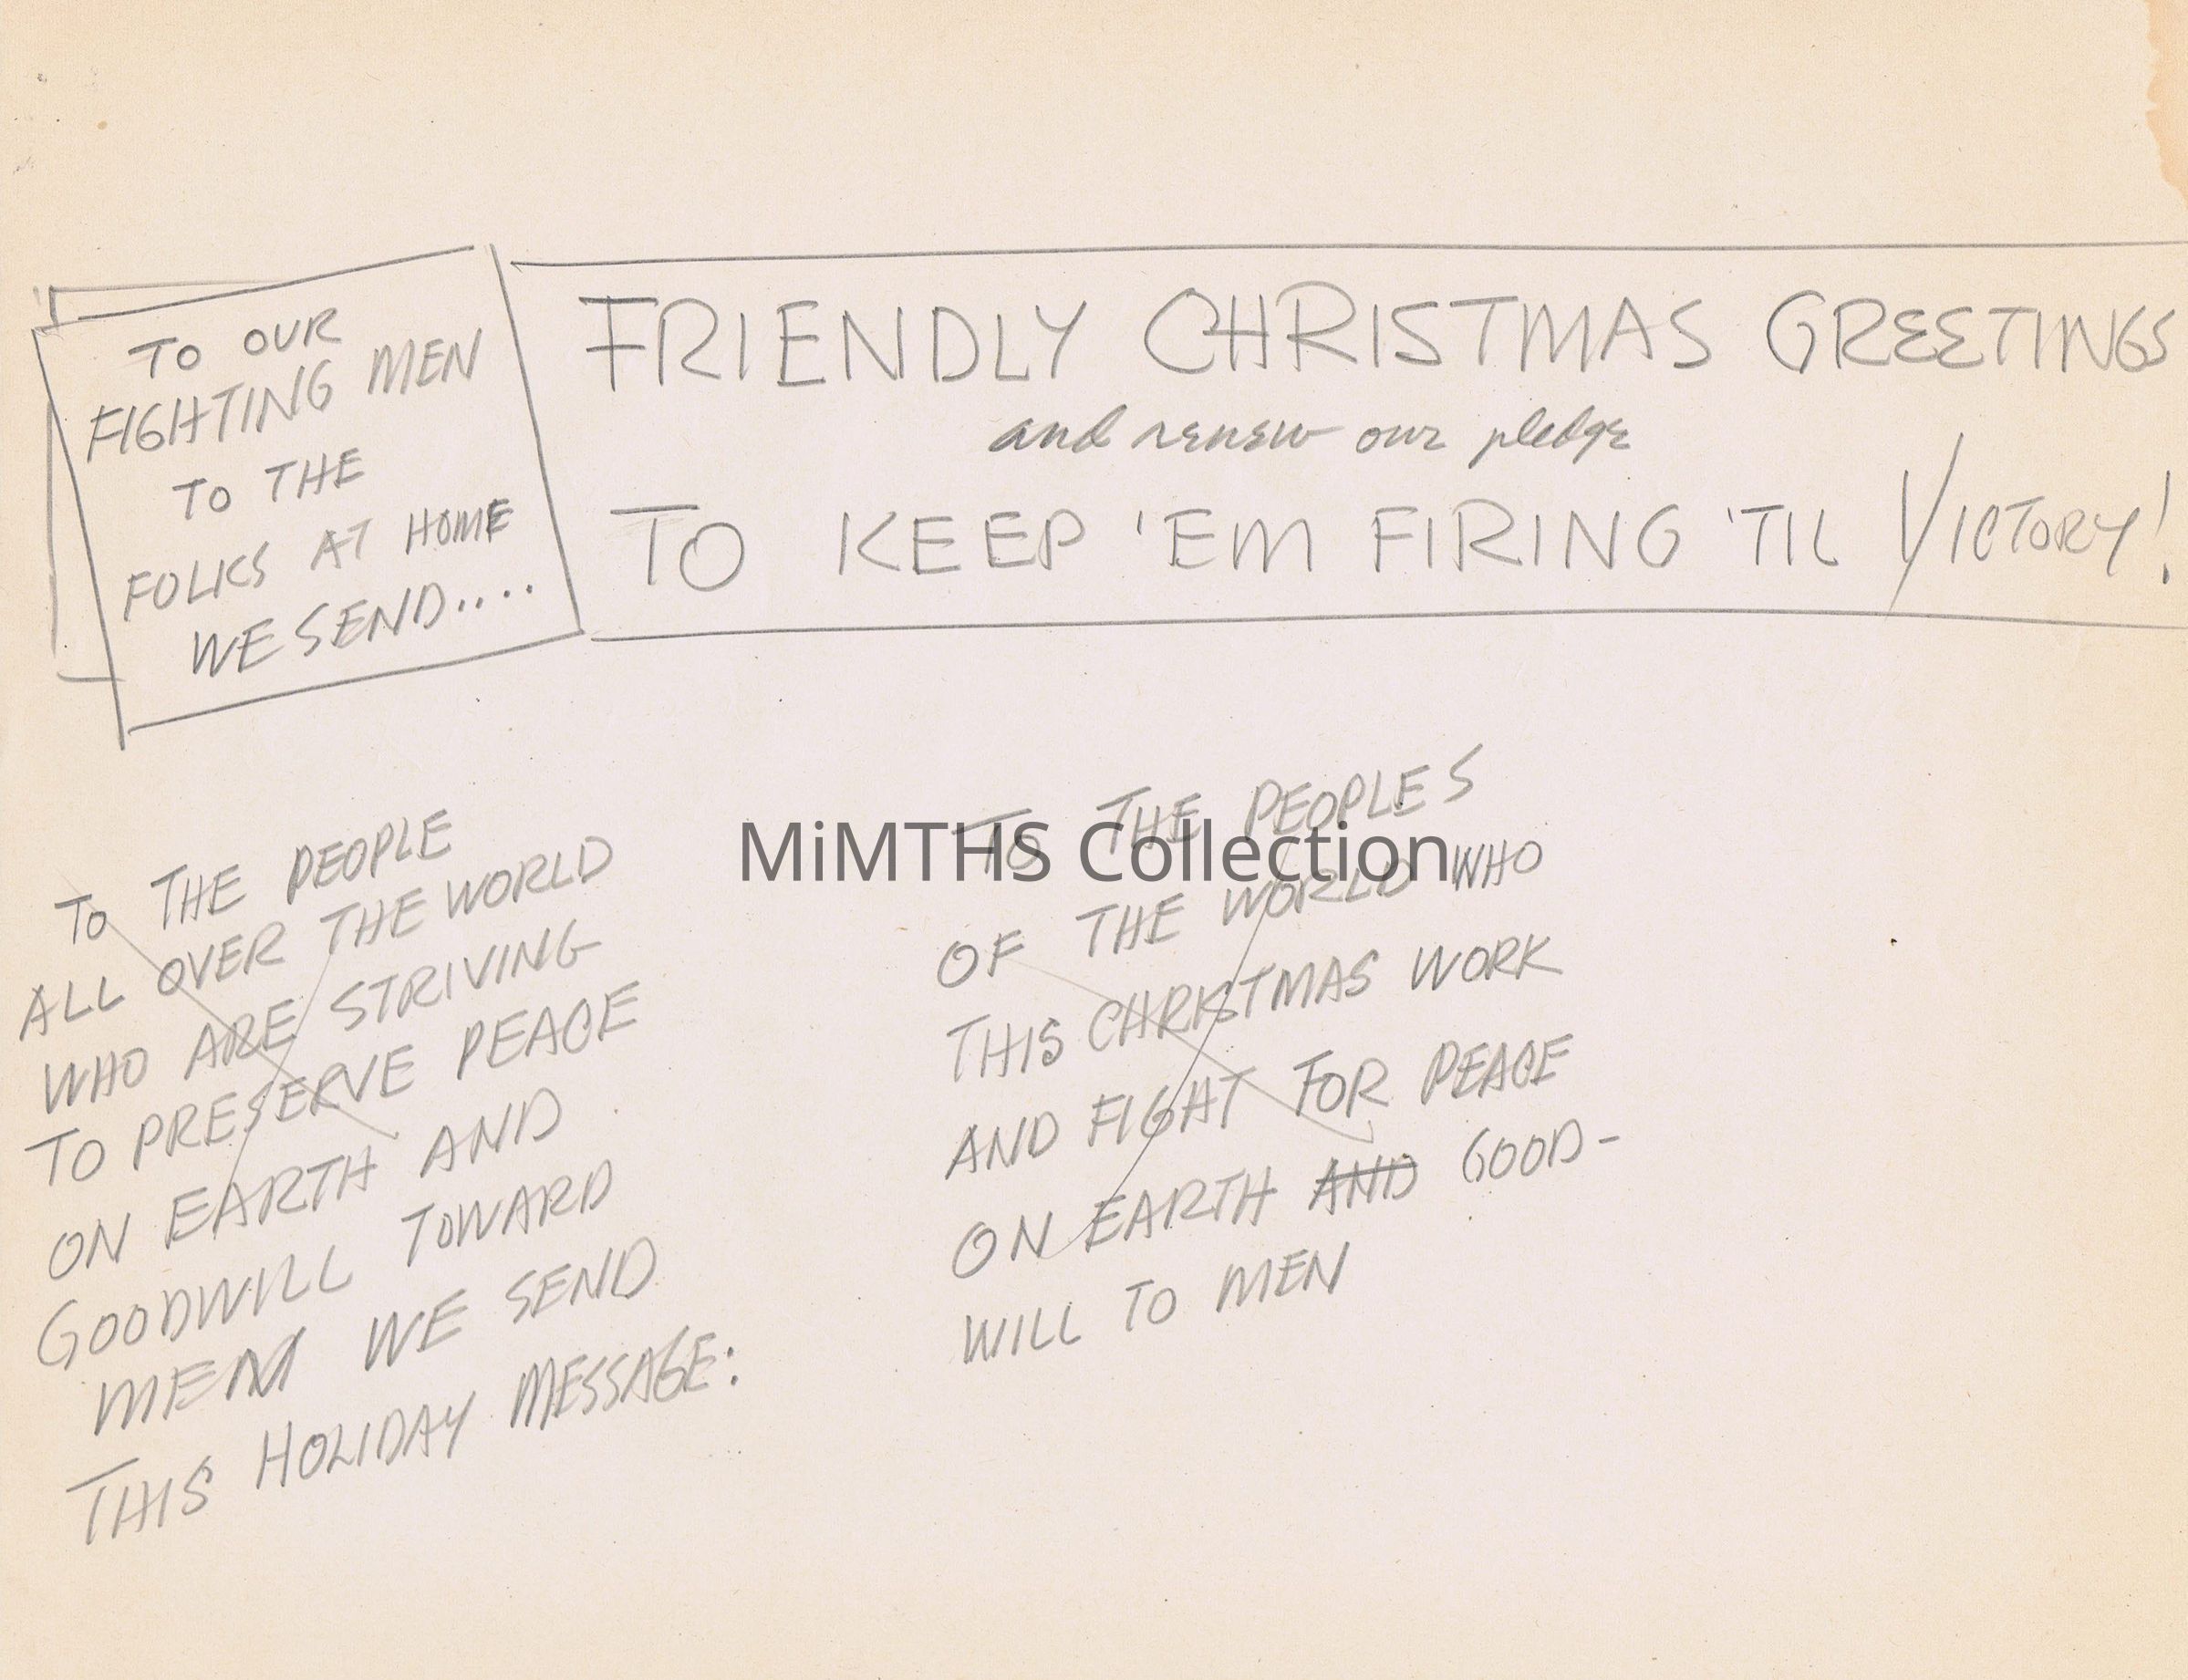 TO OUR
FIGHTING MEN
TO THE
FOLKS AT HOME
WE SEND....
FRIENDLY CHRISTMAS GREETINGS
and renew our pledge
TO KEEP 'EM FIRING 'TIL VICTORY!
TO THE PEOPLE
ALL OVER THE WORLD
WHO ARE STRIVING
TO PRESERVE PEACE
ON EARTH AND
GOODWILL TOWARD
MEN WE SEND
THIS HOLIDAY MESSAGE:
TO THE PEOPLES
OF THE WORLD WHO
THIS CHRISTMAS WORK
AND FIGHT FOR PEACE
ON EARTH AND GOOD-
WILL TO MEN
MiMTHS Collection